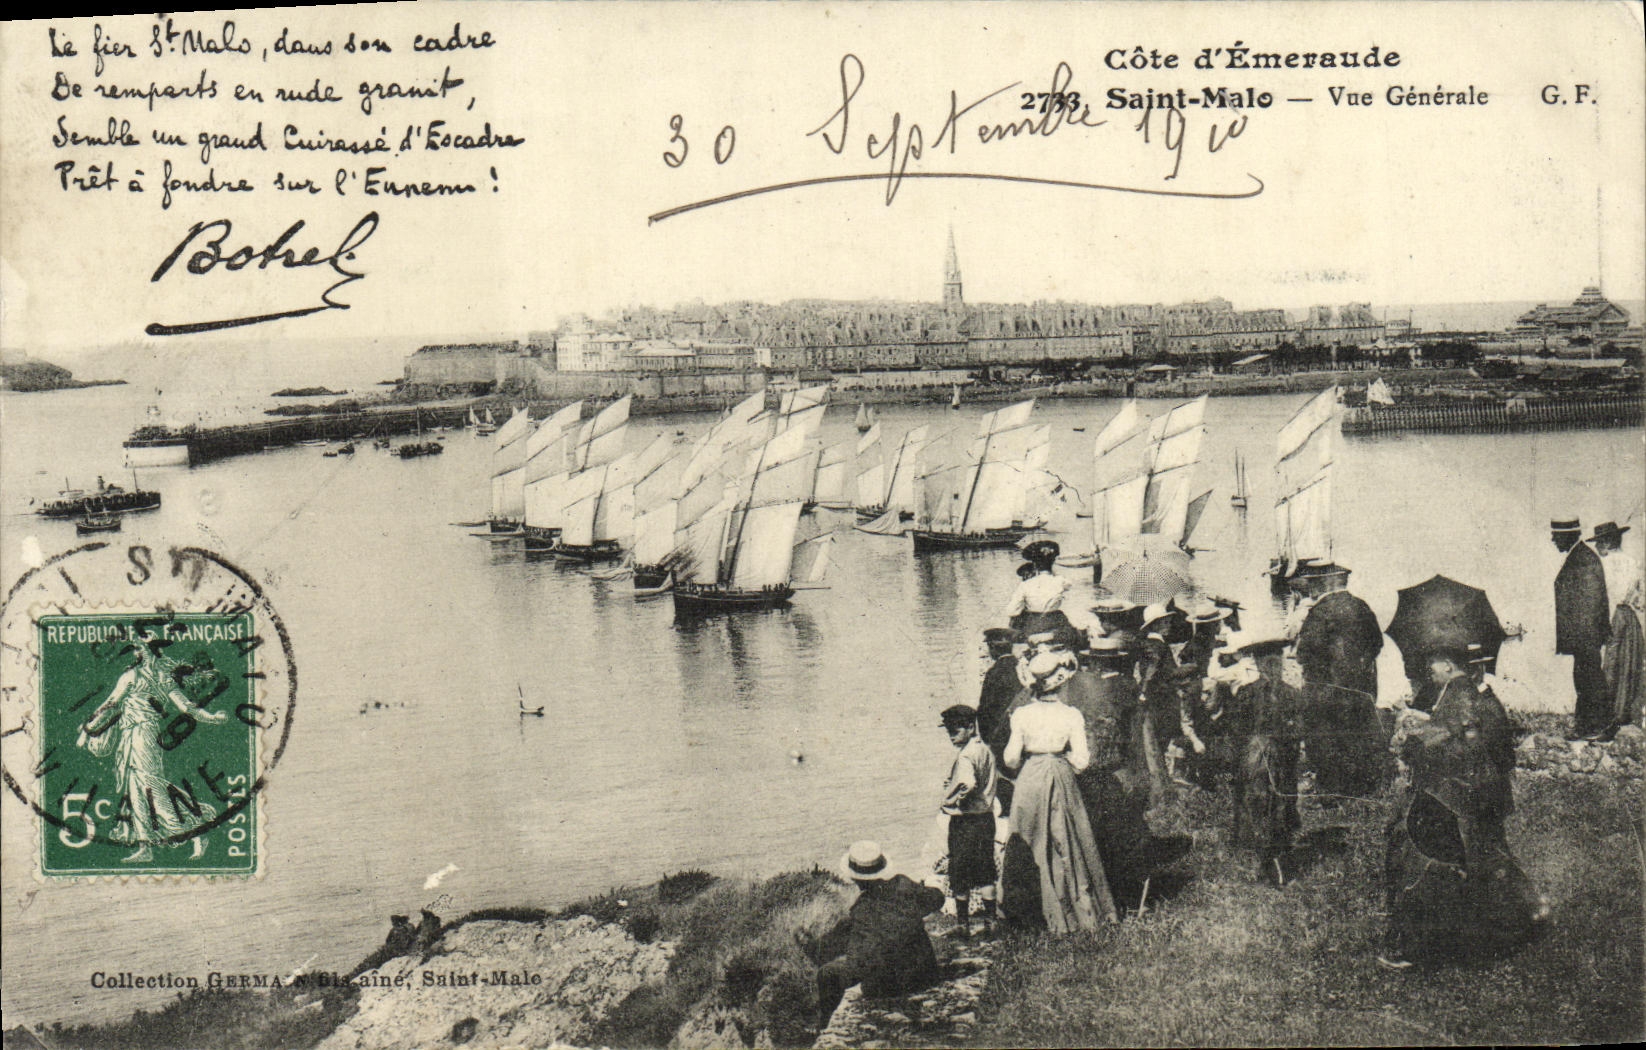 Le fier St Malo, dans son cadre
De remparts en rude granit,
Semble un grand Cuirassé d'Escadre
Prêt à fondre sur l'Ennemi !
Botrel
Côte d'Émeraude
2733. Saint-Malo — Vue Générale G. F.
30 Septembre 1910
REPUBLIQUE FRANÇAISE
5c
POSTES
ST MALO
VILAINE
Collection GERMAIN fils aîné, Saint-Malo